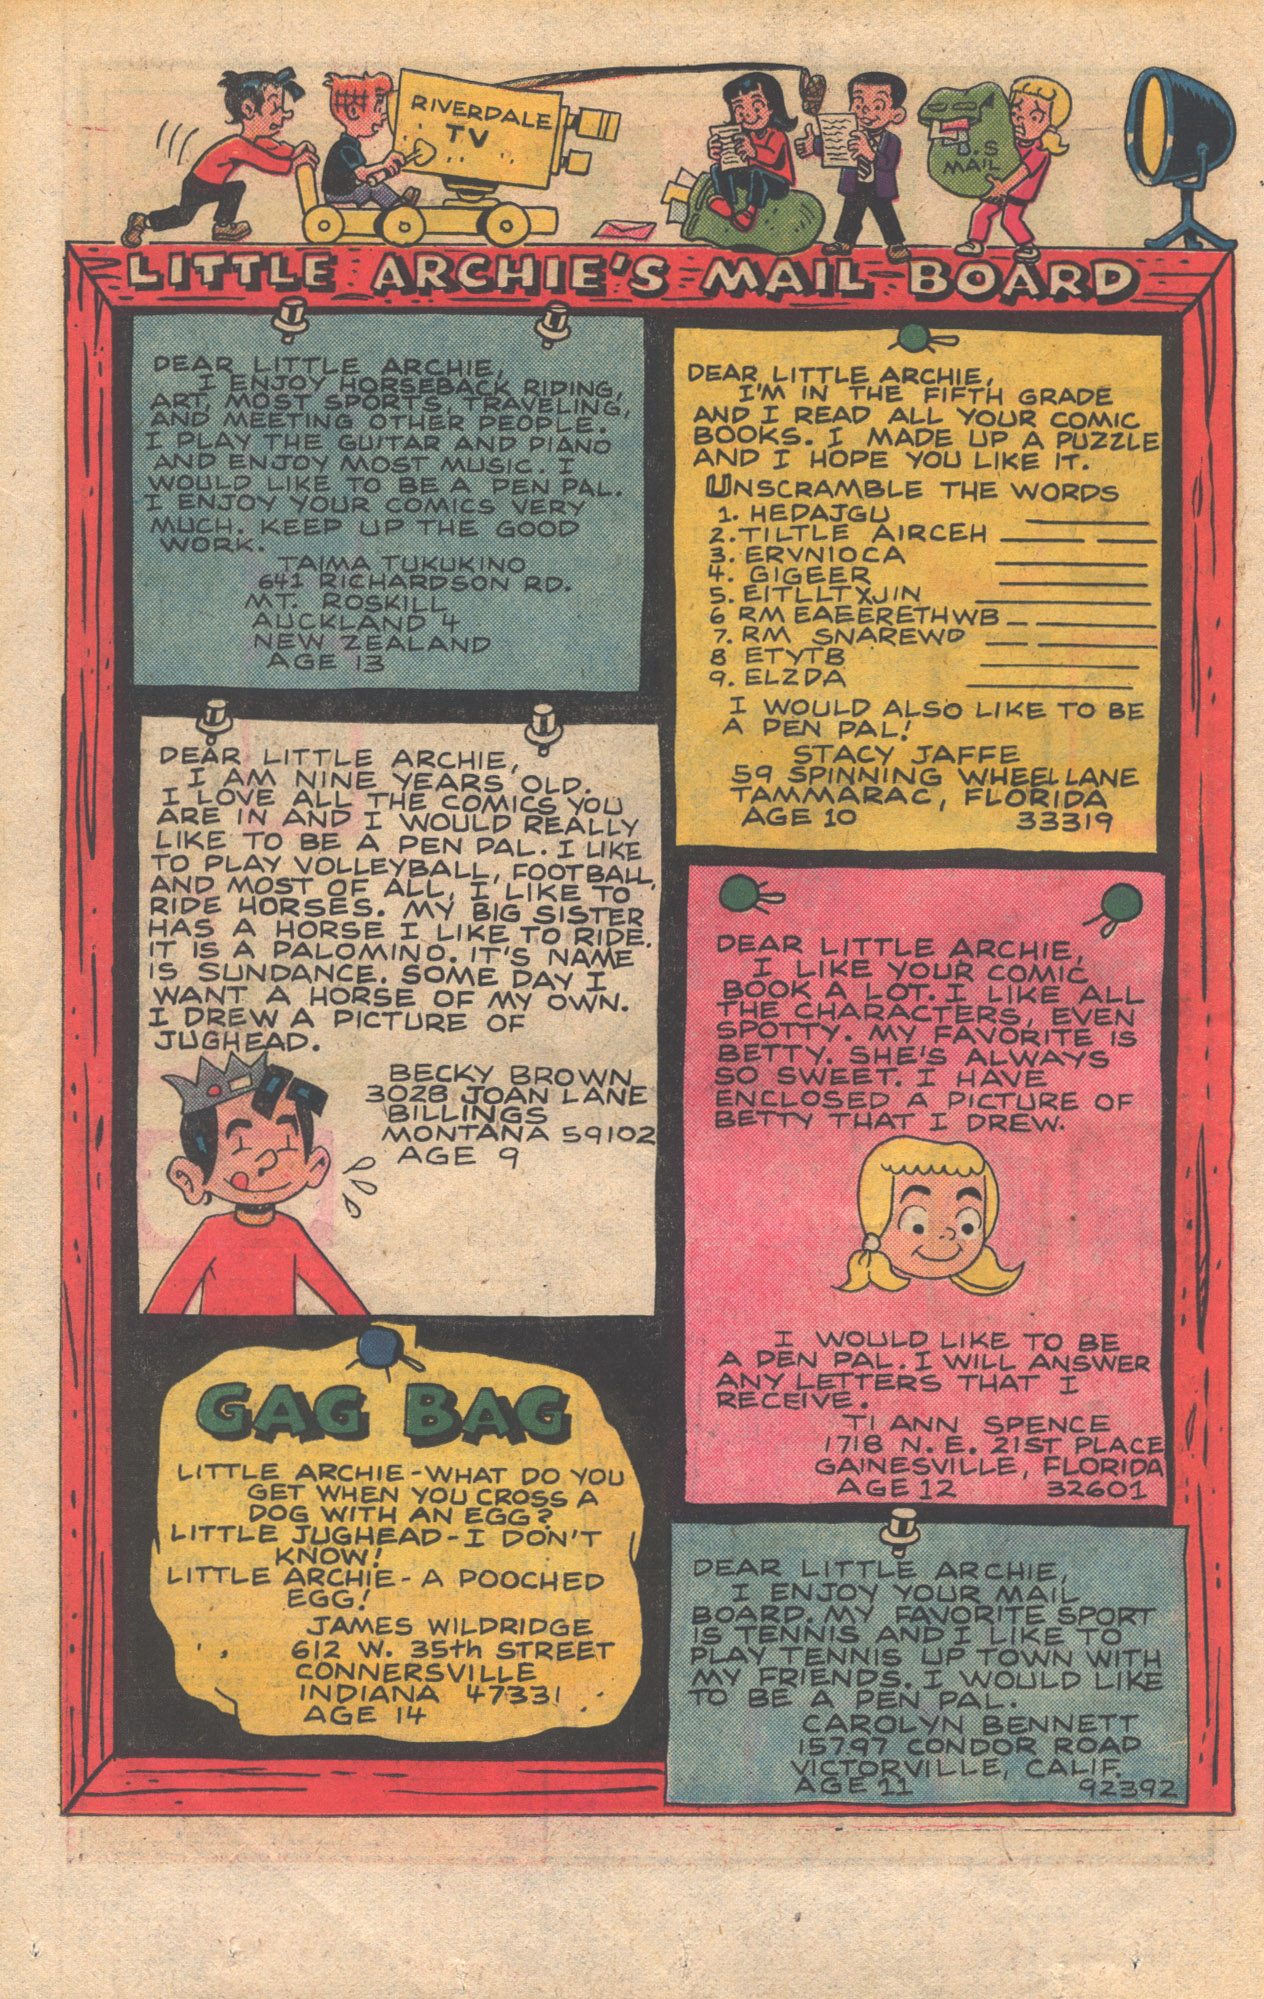 RIVERDALE
TV
U.S
MAIL
LITTLE ARCHIE'S MAIL BOARD
DEAR LITTLE ARCHIE,
I ENJOY HORSEBACK RIDING,
ART, MOST SPORTS, TRAVELING,
AND MEETING OTHER PEOPLE.
I PLAY THE GUITAR AND PIANO
AND ENJOY MOST MUSIC. I
WOULD LIKE TO BE A PEN PAL.
I ENJOY YOUR COMICS VERY
MUCH. KEEP UP THE GOOD
WORK.
TAIMA TUKUKINO
641 RICHARDSON RD.
MT. ROSKILL
AUCKLAND 4
NEW ZEALAND
AGE 13
DEAR LITTLE ARCHIE,
I AM NINE YEARS OLD.
I LOVE ALL THE COMICS YOU
ARE IN AND I WOULD REALLY
LIKE TO BE A PEN PAL. I LIKE
TO PLAY VOLLEYBALL, FOOTBALL,
AND MOST OF ALL, I LIKE TO
RIDE HORSES. MY BIG SISTER
HAS A HORSE I LIKE TO RIDE.
IT IS A PALOMINO. IT'S NAME
IS SUNDANCE. SOME DAY I
WANT A HORSE OF MY OWN.
I DREW A PICTURE OF
JUGHEAD.
BECKY BROWN
3028 JOAN LANE
BILLINGS
MONTANA 59102
AGE 9
GAG BAG
LITTLE ARCHIE - WHAT DO YOU
GET WHEN YOU CROSS A
DOG WITH AN EGG?
LITTLE JUGHEAD - I DON'T
KNOW!
LITTLE ARCHIE - A POOCHED
EGG!
JAMES WILDRIDGE
612 W. 35th STREET
CONNERSVILLE
INDIANA 47331
AGE 14
DEAR LITTLE ARCHIE,
I'M IN THE FIFTH GRADE
AND I READ ALL YOUR COMIC
BOOKS. I MADE UP A PUZZLE
AND I HOPE YOU LIKE IT.
UNSCRAMBLE THE WORDS
1. HEDAJGU
2. TILTLE AIRCEH
3. ERVNIOCA
4. GIGEER
5. EITLLTXJIN
6 RMEAEERETHWB
7. RM SNAREWD
8 ETYTB
9. ELZDA
I WOULD ALSO LIKE TO BE
A PEN PAL!
STACY JAFFE
59 SPINNING WHEEL LANE
TAMMARAC, FLORIDA
AGE 10 33319
DEAR LITTLE ARCHIE,
I LIKE YOUR COMIC
BOOK A LOT. I LIKE ALL
THE CHARACTERS, EVEN
SPOTTY. MY FAVORITE IS
BETTY. SHE'S ALWAYS
SO SWEET. I HAVE
ENCLOSED A PICTURE OF
BETTY THAT I DREW.
I WOULD LIKE TO BE
A PEN PAL. I WILL ANSWER
ANY LETTERS THAT I
RECEIVE.
TI ANN SPENCE
1718 N. E. 21ST PLACE
GAINESVILLE, FLORIDA
AGE 12 32601
DEAR LITTLE ARCHIE,
I ENJOY YOUR MAIL
BOARD. MY FAVORITE SPORT
IS TENNIS AND I LIKE TO
PLAY TENNIS UP TOWN WITH
MY FRIENDS. I WOULD LIKE
TO BE A PEN PAL.
CAROLYN BENNETT
15797 CONDOR ROAD
VICTORVILLE, CALIF.
AGE 11 92392